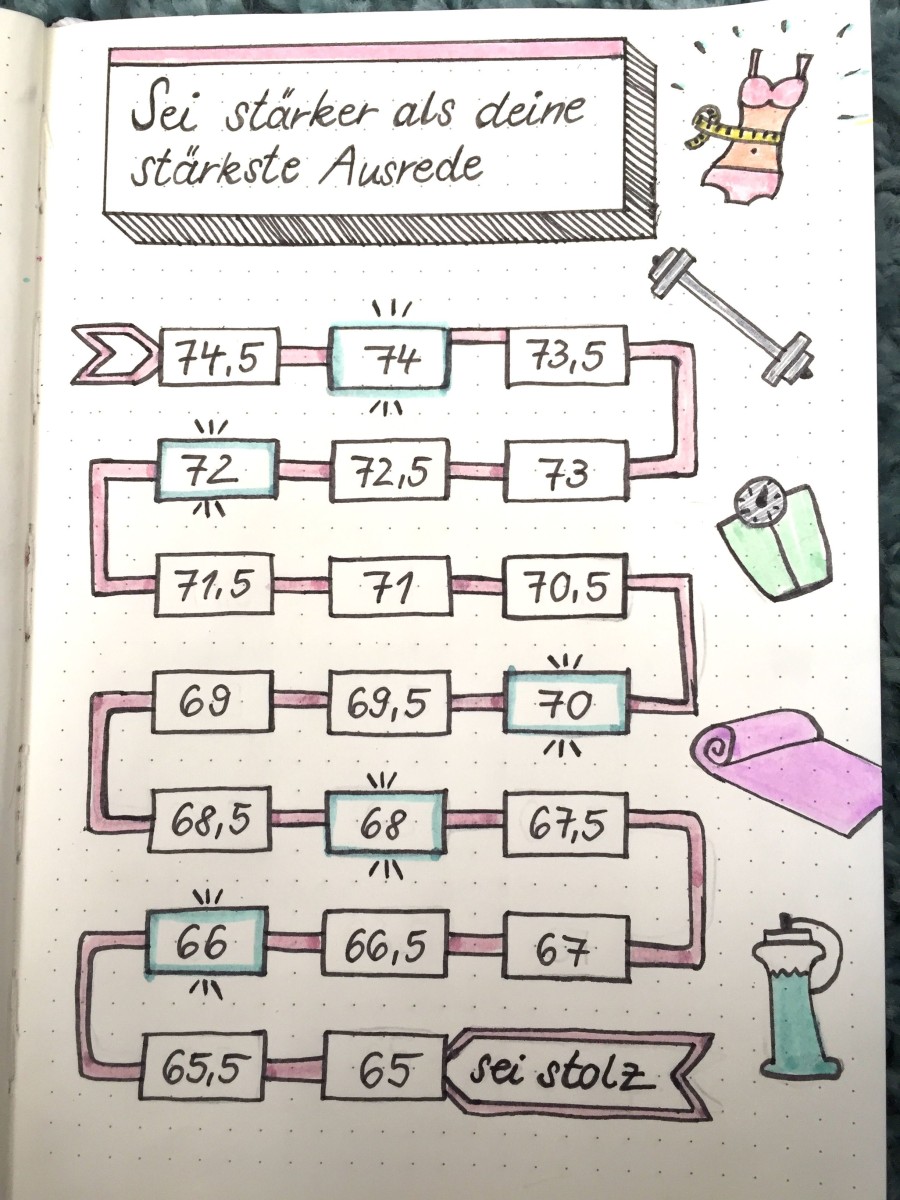 Sei stärker als deine
stärkste Ausrede
74,5 74 73,5
72 72,5 73
71,5 71 70,5
69 69,5 70
68,5 68 67,5
66 66,5 67
65,5 65 sei stolz